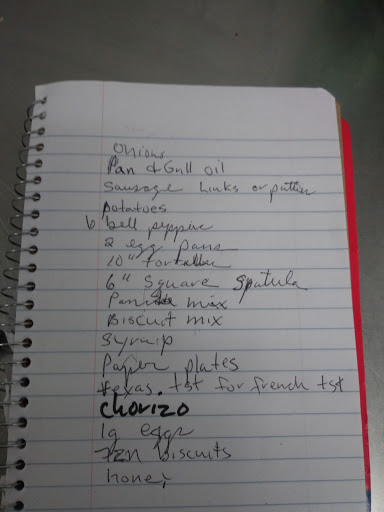 onions
Pan & Grill oil
Sausage links or pattie
potatoes
6 bell peppers
2 egg pans
10" tortilla
6" square spatula
mix
Biscuit mix
Syruip
Paper plates
texas tst for french tst
chorizo
lg eggs
fzn biscuits
honey